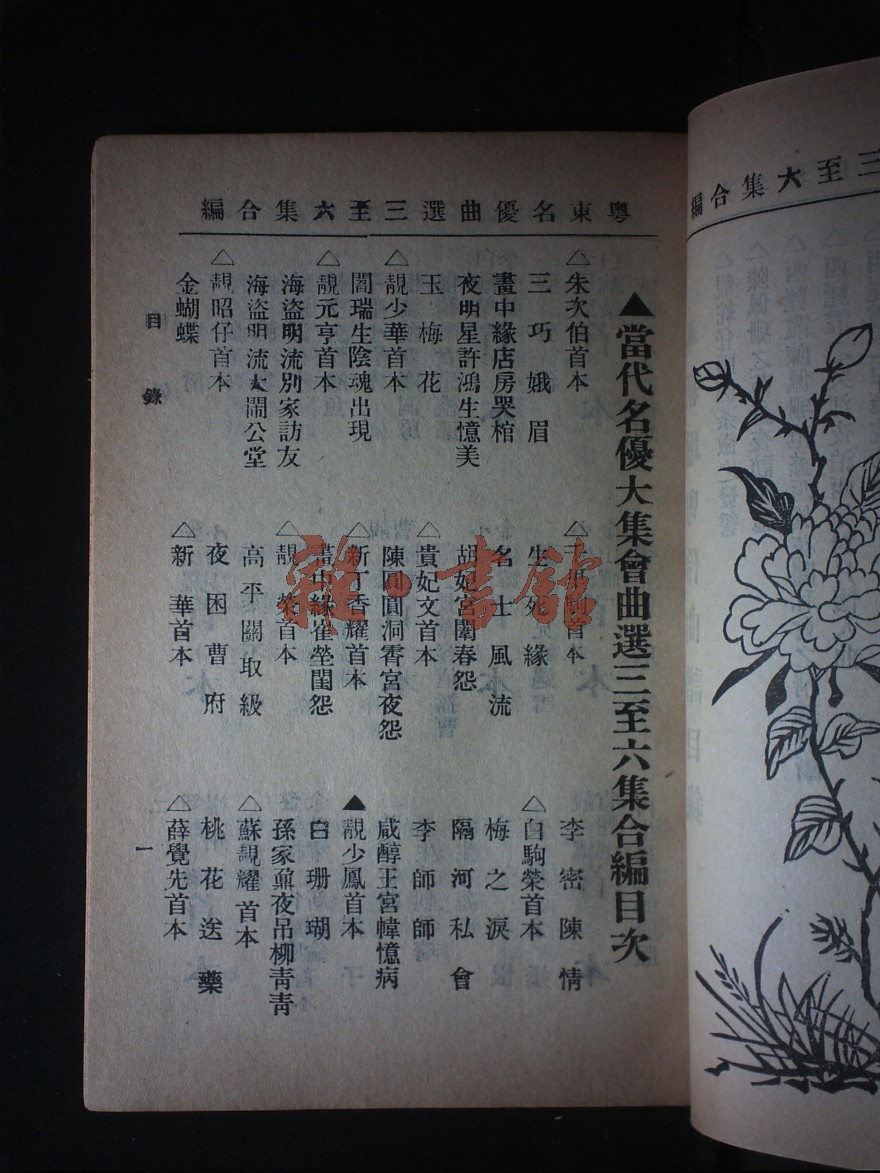 粵東名優曲選三至六集合編
▲當代名優大集會曲選三至六集合編目次
△朱次伯首本
三巧娥眉
畫中緣店房哭棺
夜明星許鴻生憶美
玉梅花
△靚少華首本
閻瑞生陰魂出現
△靚元亨首本
海盜明流別家訪友
海盜明流大鬧公堂
△靚昭仔首本
金蝴蝶
首本
生死緣
名士風流
胡妃宮闈春怨
△貴妃文首本
陳圓圓洞霄宮夜怨
△新丁香耀首本
畫中緣崔瑩閨怨
△靚榮首本
高平關取級
夜困曹府
△新華首本
李密陳情
△白駒榮首本
梅之淚
隔河私會
李師師
咸醇王宮幃憶病
▲靚少鳳首本
白珊瑚
孫家鼐夜吊柳青青
△蘇靚耀首本
桃花送藥
△薛覺先首本
目錄
一
三至六集合編
雅·書館